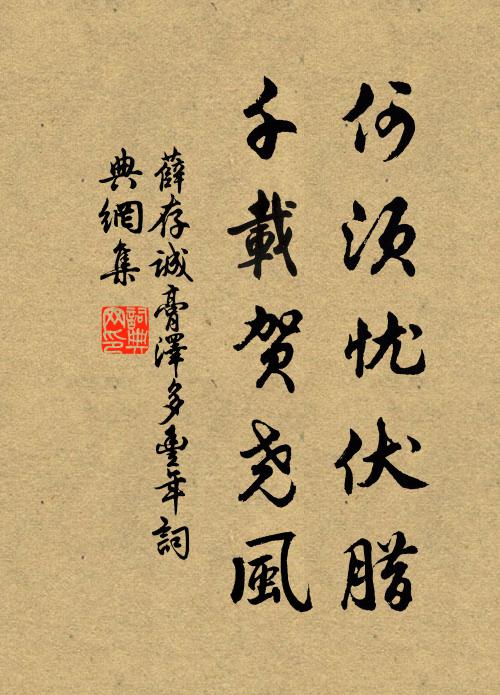 何须忧伏腊
千載贺尧風
薛存诚膏澤多豊年詞
典網集
詞典
网印